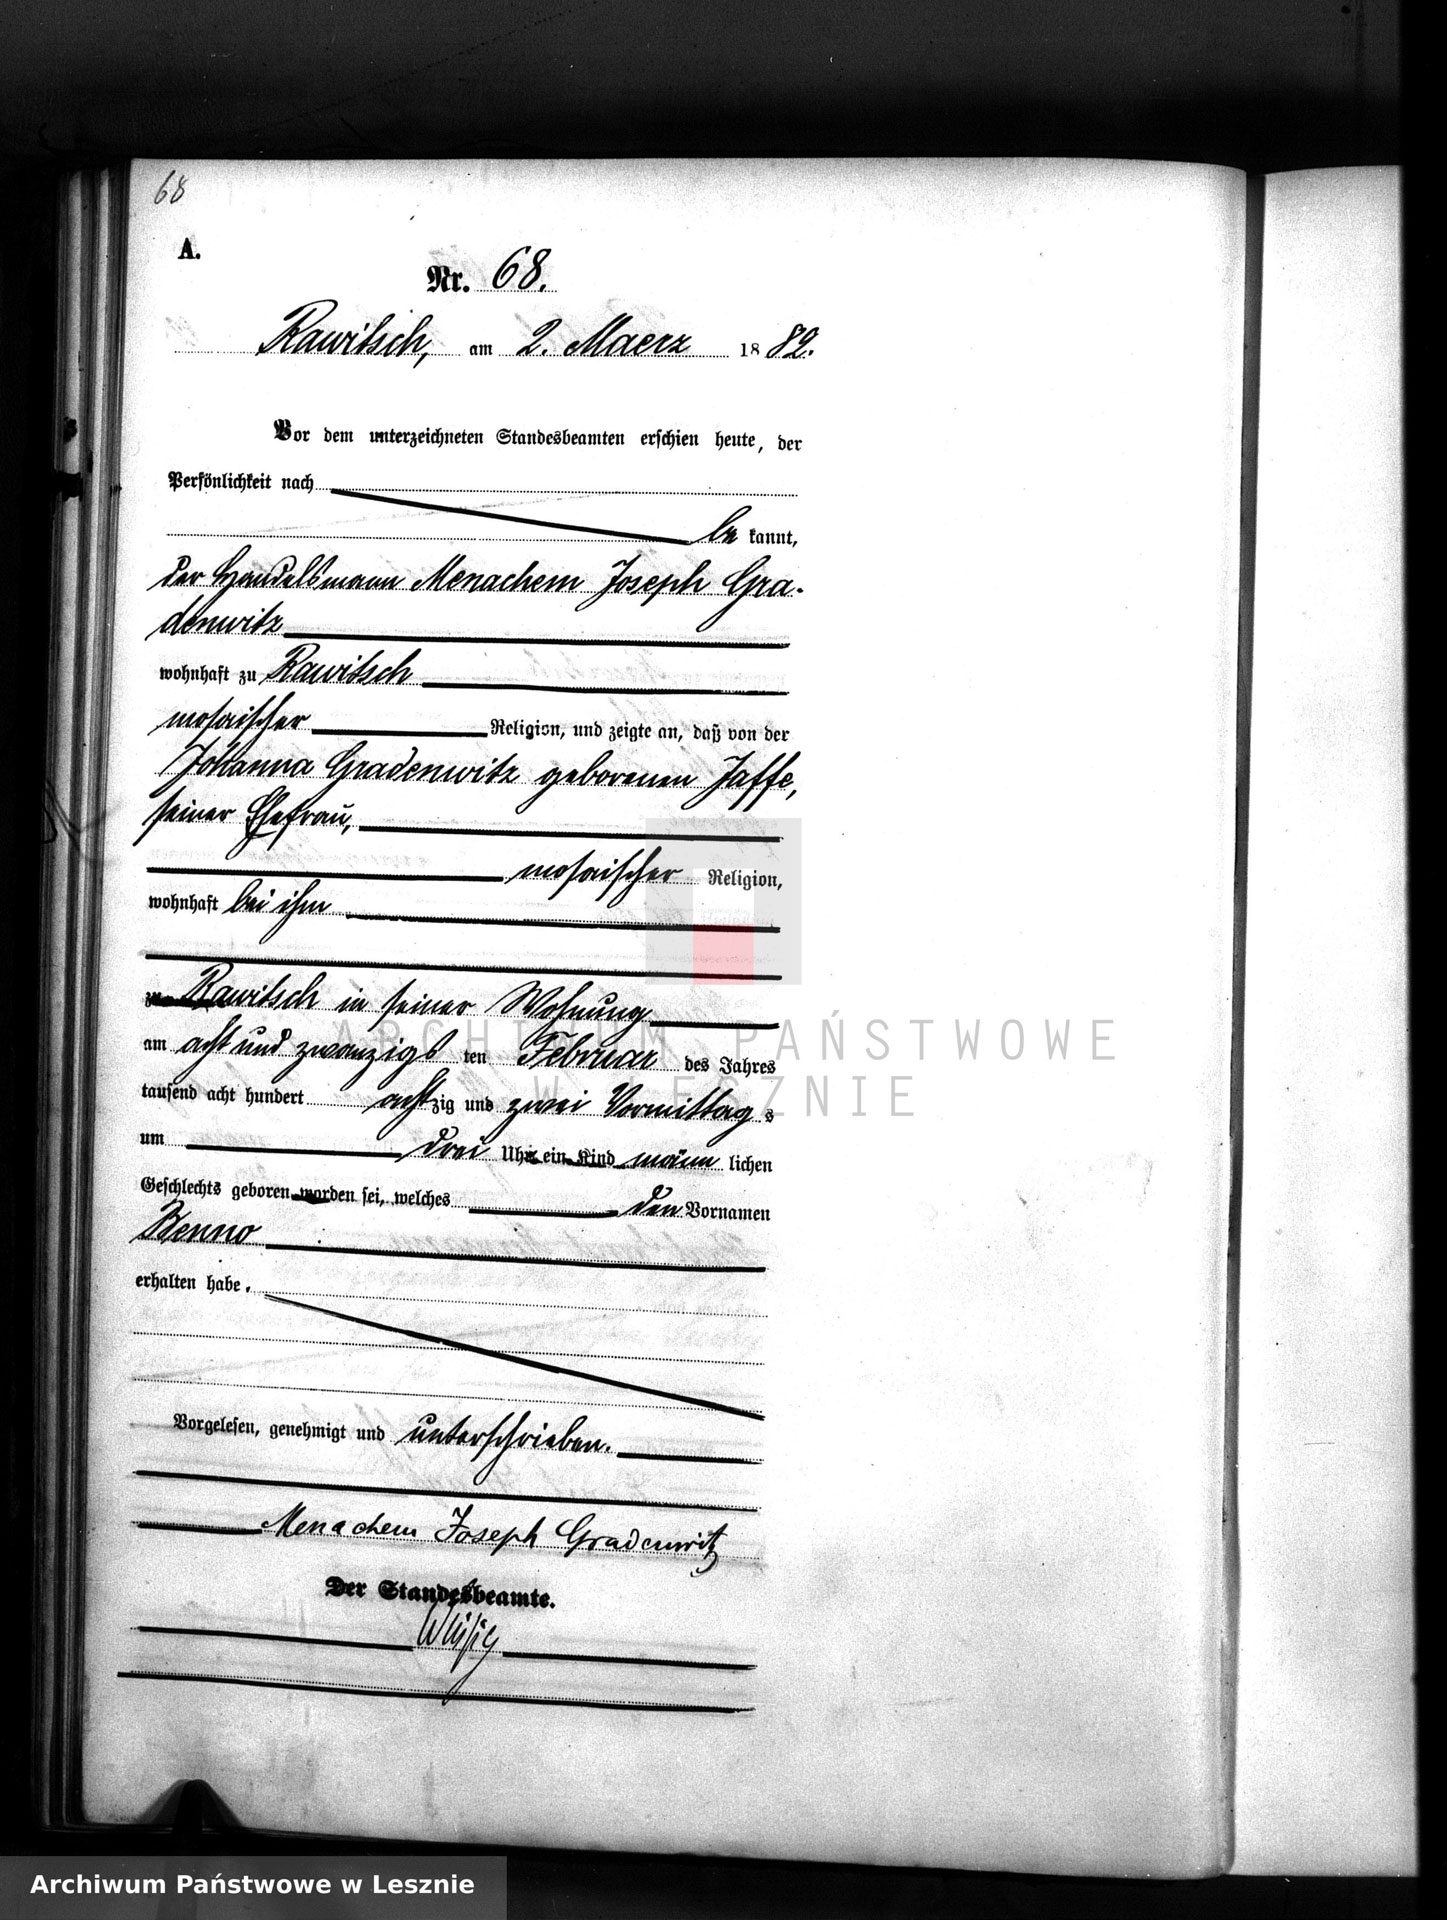 68
A.
Nr. 68.
Rawitsch, am 2. Maerz 1882.
Vor dem unterzeichneten Standesbeamten erschien heute, der
Persönlichkeit nach
be kannt,
der Handelsmann Menachem Joseph Gra-
denwitz
wohnhaft zu Rawitsch
mosaischer Religion, und zeigte an, daß von der
Johanna Gradenwitz geborenen Jaffe,
seiner Ehefrau,
mosaischer Religion,
wohnhaft bei ihm
zu Rawitsch in seiner Wohnung
am acht und zwanzigs ten Februar des Jahres
tausend acht hundert achtzig und zwei Vormittag s
um drei Uhr ein Kind männ lichen
Geschlechts geboren worden sei, welches den Vornamen
Benno
erhalten habe.
Vorgelesen, genehmigt und unterschrieben.
Menachem Joseph Gradenwitz
Der Standesbeamte.
ARCHIWUM PAŃSTWOWE
W LESZNIE
Archiwum Państwowe w Lesznie